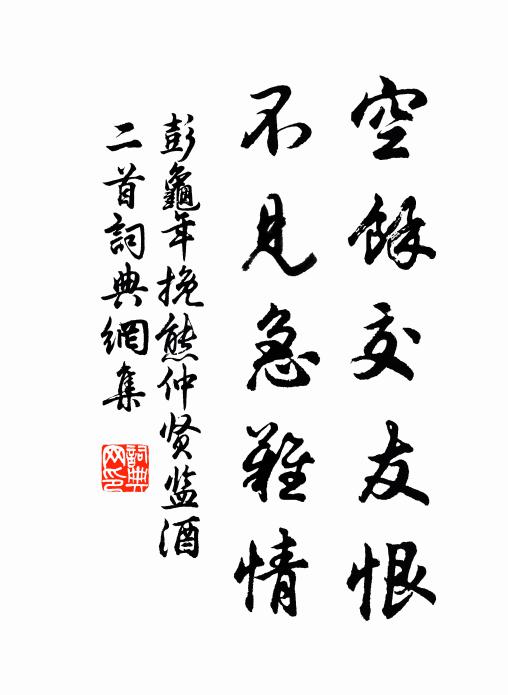 空餘交友恨
不見急難情
彭龜年挽熊仲贤监酒
二首詞典網集
詞典
网印